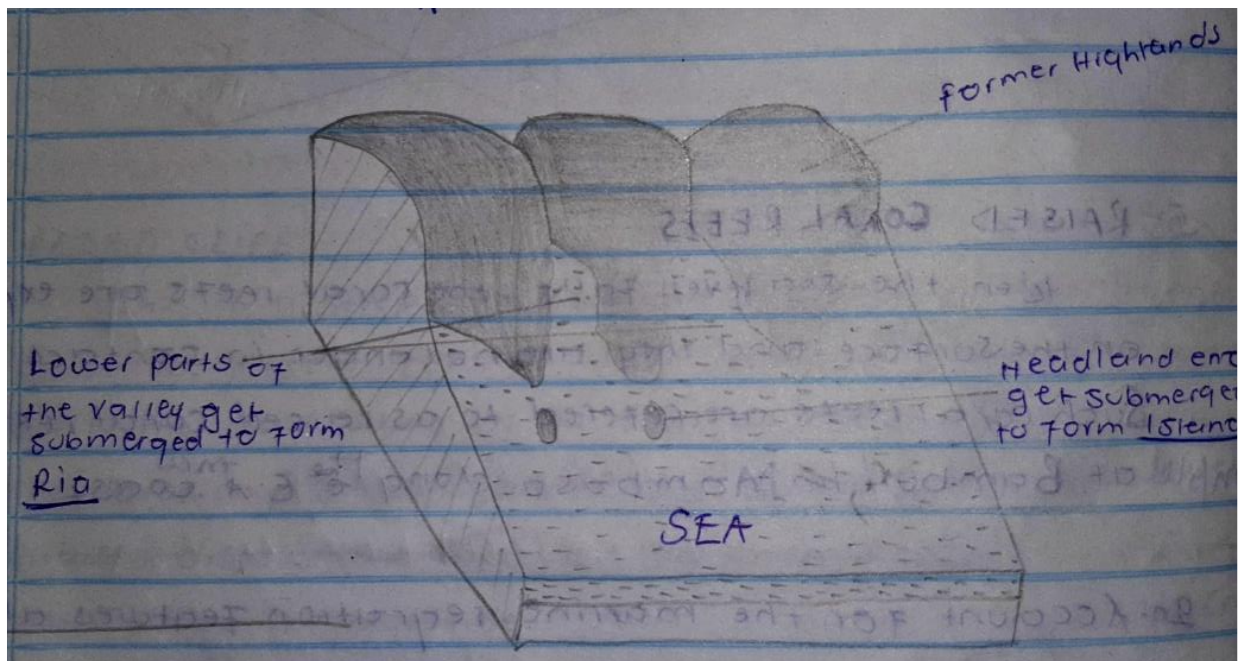 former Highlands
Lower parts of
the valley get
submerged to form
Ria
Headland end
get submerge
to form Island
SEA